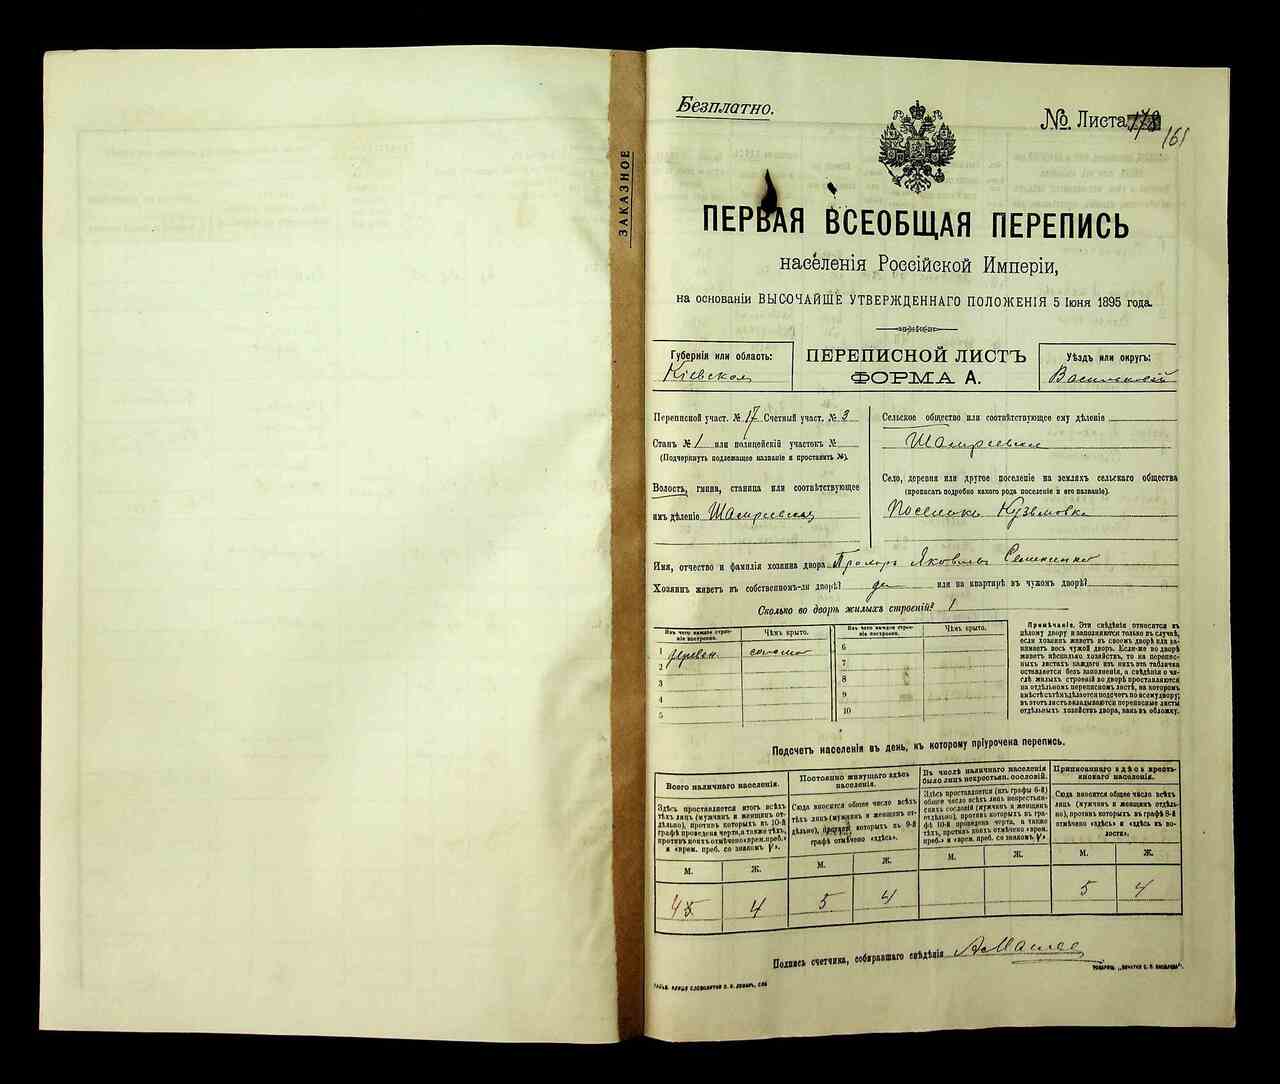 Безплатно.
№ Листа 161
ЗАКАЗНОЕ
ПЕРВАЯ ВСЕОБЩАЯ ПЕРЕПИСЬ
населенія Россійской Имперіи,
на основаніи ВЫСОЧАЙШЕ УТВЕРЖДЕННАГО ПОЛОЖЕНІЯ 5 Іюня 1895 года.
Губернія или область:
Кіевская
ПЕРЕПИСНОЙ ЛИСТЪ
ФОРМА А.
Уѣздъ или округъ:
Васильковскій
Переписной участ. № 17 Счетный участ. № 3
Станъ № 1 или полицейскій участокъ №
(Подчеркнуть подлежащее названіе и проставить №).
Волость, гмина, станица или соотвѣтствующее
имъ дѣленіе
Сельское общество или соотвѣтствующее ему дѣленіе
Село, деревня или другое поселеніе на земляхъ сельскаго общества
(прописать подробно какого рода поселеніе и его названіе).
Поселокъ Кузьмовка
Имя, отчество и фамилія хозяина двора Яковлевъ Семененко
Хозяинъ живетъ въ собственномъ-ли дворѣ? да или на квартирѣ въ чужомъ дворѣ?
Сколько во дворѣ жилыхъ строеній? 1
Изъ чего каждое строе-
ніе построено.
Чѣмъ крыто.
1 дерев. солома
2
3
4
5
Изъ чего каждое строе-
ніе построено.
Чѣмъ крыто.
6
7
8
9
10
Примѣчаніе. Эти свѣдѣнія относятся къ
цѣлому двору и заполняются только въ случаѣ,
если хозяинъ живетъ въ своемъ дворѣ или за-
нимаетъ весь чужой дворъ. Если-же во дворѣ
живетъ нѣсколько хозяйствъ, то на перепис-
ныхъ листахъ каждаго изъ нихъ эта табличка
оставляется безъ заполненія, а свѣдѣнія о чи-
слѣ жилыхъ строеній во дворѣ проставляются
на отдѣльномъ переписномъ листѣ, на которомъ
вмѣстѣ съ тѣмъ дѣлается подсчетъ по всему двору;
въ этотъ листъ вкладываются переписные листы
отдѣльныхъ хозяйствъ двора, какъ въ обложку.
Подсчетъ населенія въ день, къ которому пріурочена перепись.
Всего наличнаго населенія.
Здѣсь проставляется итогъ всѣхъ
тѣхъ лицъ (мужчинъ и женщинъ от-
дѣльно), противъ которыхъ въ 10-й
графѣ проведена черта, а также тѣхъ,
противъ коихъ отмѣчено «врем. преб.»
и «врем. преб. со знакомъ V».
М. Ж.
4 5 4
Постоянно живущаго здѣсь
населенія.
Сюда вносится общее число всѣхъ
тѣхъ лицъ (мужчинъ и женщинъ от-
дѣльно), противъ которыхъ въ 9-й
графѣ отмѣчено «здѣсь».
М. Ж.
5 4
Въ числѣ наличнаго населенія
было лицъ некрестьян. сословій.
Здѣсь проставляется (изъ графы 6-й)
общее число всѣхъ лицъ некрестьян-
скихъ сословій (мужчинъ и женщинъ
отдѣльно), противъ которыхъ въ
графѣ 10-й проведена черта, а также
тѣхъ, противъ коихъ отмѣчено «врем.
преб.» и «врем. преб. со знакомъ V».
М. Ж.
Приписаннаго здѣсь кресть-
янскаго населенія.
Сюда вносится общее число всѣхъ
лицъ (мужчинъ и женщинъ отдѣль-
но), противъ которыхъ въ графѣ 8-й
отмѣчено «здѣсь» и «здѣсь въ во-
лости».
М. Ж.
5 4
Подпись счетчика, собиравшаго свѣдѣнія